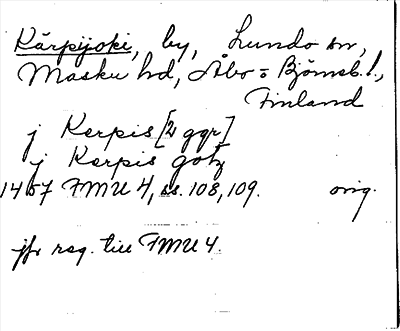 Kärpijoki, by, Lundo sn,
Masku hd, Åbo = Björneb. l.,
Finland
j Kerpis [2 ggr]
j Kerpis götz
1457 FMU 4, ss. 108, 109. orig.
jfr reg. till FMU 4.